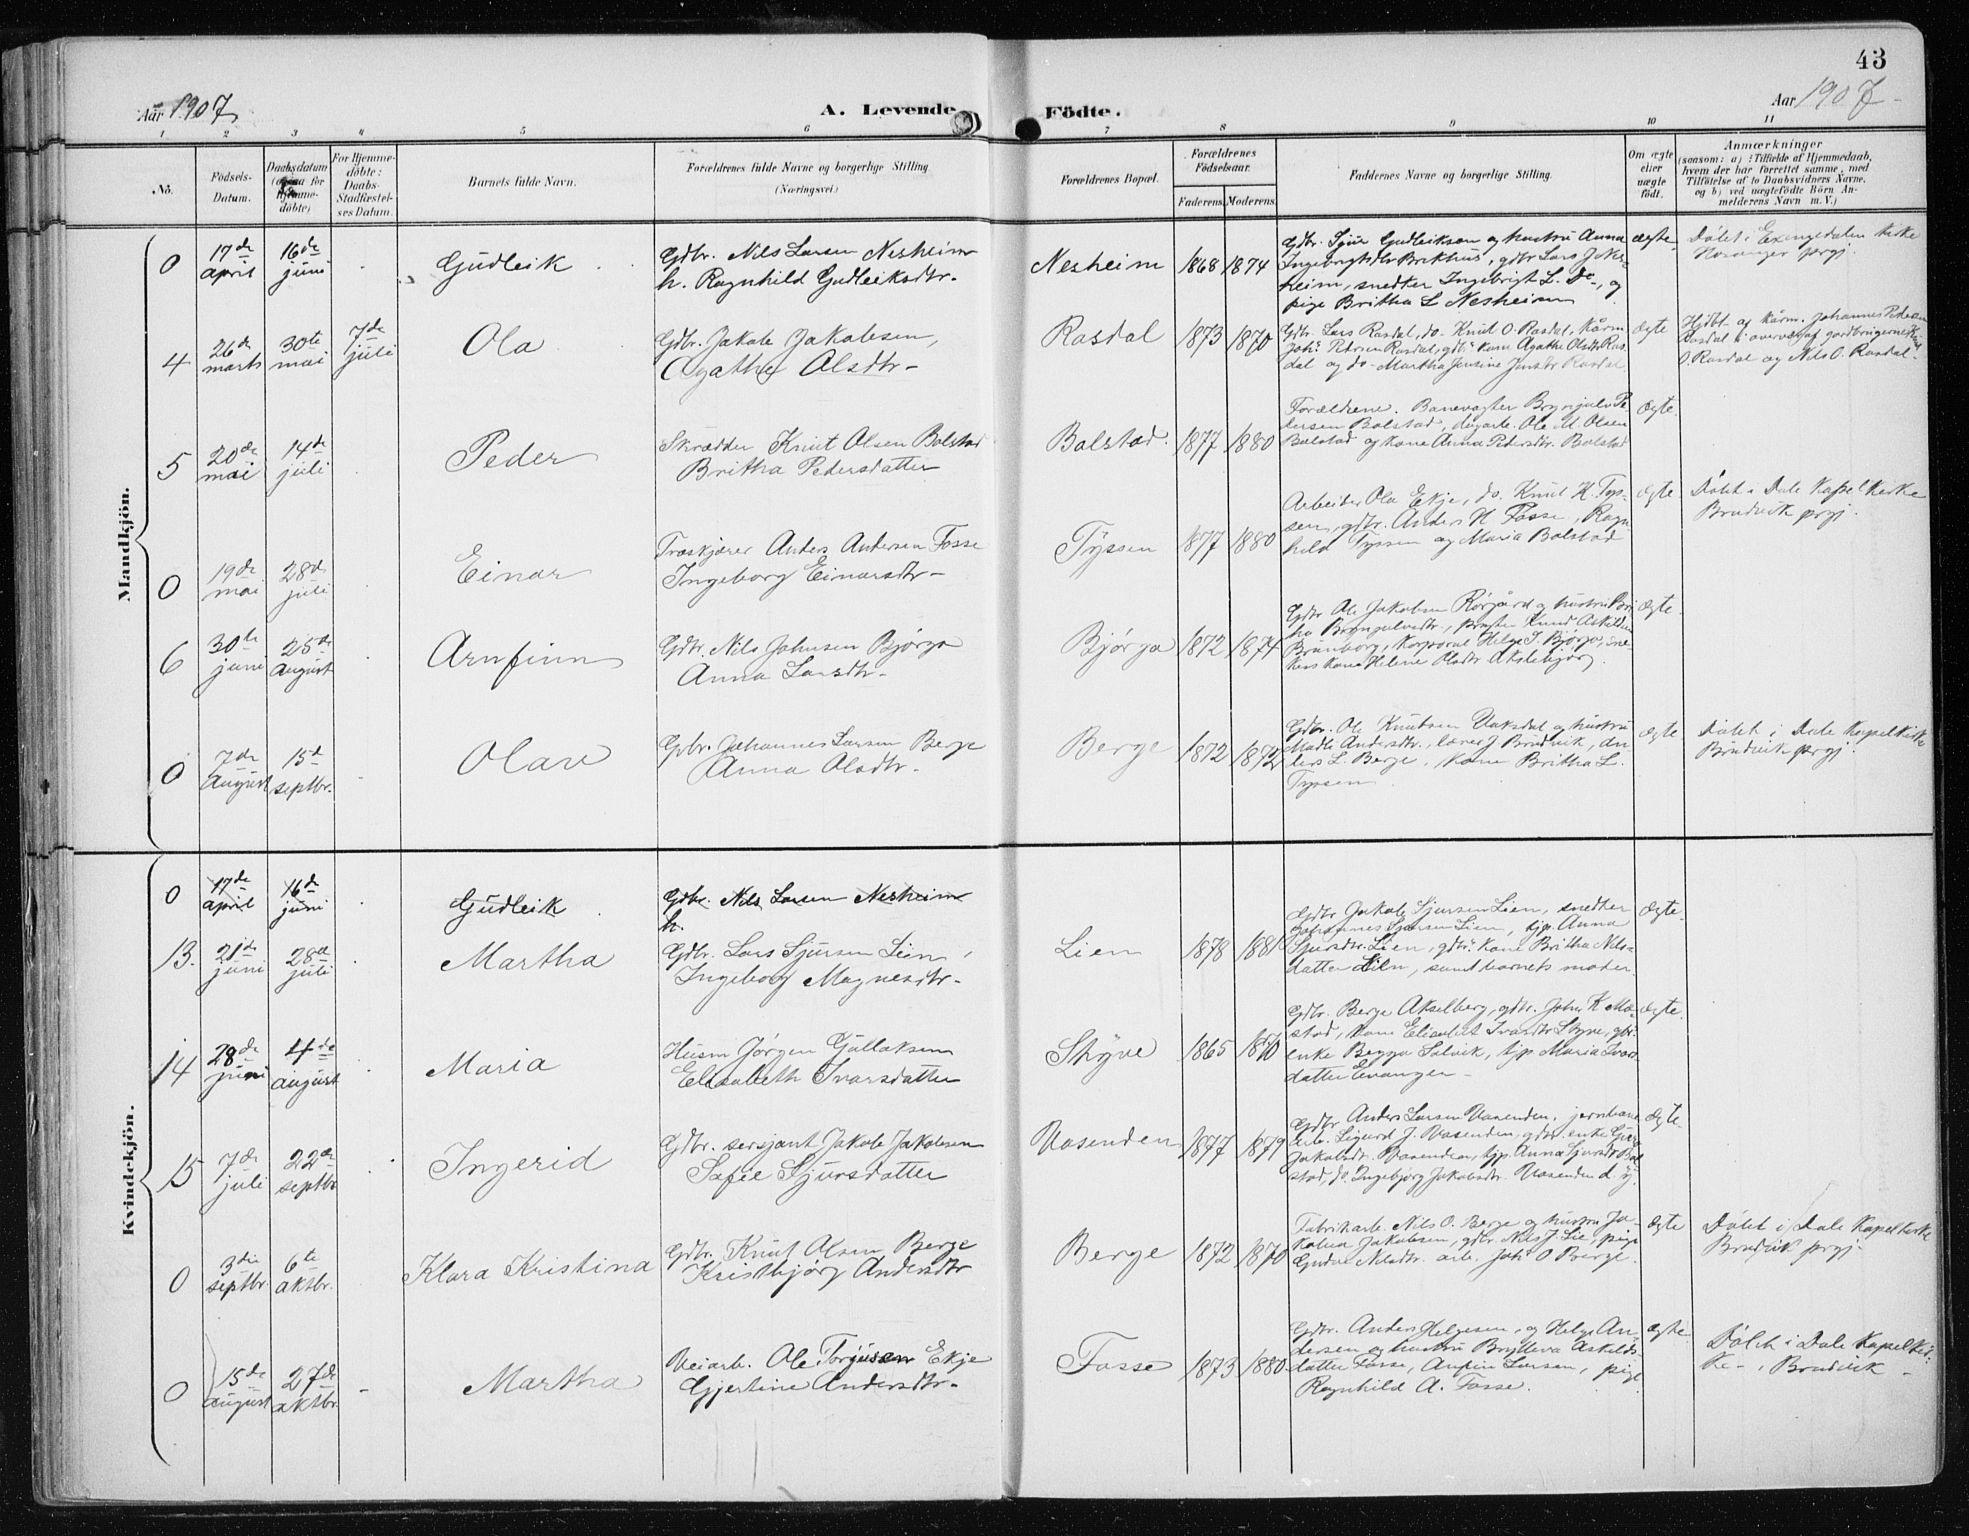 43
Aar 1907
A. Levende
Födte.
Aar 1907
1 2 3 4 5 6 7 8 9 10 11
No.
Födsels-
Datum.
Daabsdatum
for
Hjemme-
döbte)
For Hjemme-
döbte:
Daabs-
Stadfæstel-
ses Datum.
Barnets fulde Navn.
Forældrenes fulde Navne og borgerlige Stilling
(Næringsvei.)
Forældrenes Bopæl.
Forældrenes
Födselsaar.
Faderens. Moderens.
Faddernes Navne og borgerlige Stilling.
Om ægte
eller
uægte
födt.
Anmærkninger
(saasom: a) i Tilfælde af Hjemmedaab,
hvem der har forrettet samme, med
Tilföielse af to Daabsvidners Navne.
og b) ved uægtefödte Börn An-
melderens Navn m. V.)
Mandkjön.
0 17de april 16de juni Gudleik
Gdbr. Nils Larsen Nesheim
h. Ragnhild Gudleiksdtr.
Nesheim 1868 1874
Gdbr. Sjur Gudleiksen og hustru Anna
Ingebrigtsdtr Brekhus, gdbr Lars Jo
heim, snedker Ingebrigt L. Do-, og
pige Britha L Nesheim
ægte
Døbt i Exingedalen kirke
Hosanger prgj.
4 26de marts 30te mai 7de juli Ola
Gdbr. Jakob Jakobsen,
Agathe Olsdtr-
Rasdal 1873 1870
Gdbr. Lars Rasdal, do- Knut O. Rasdal, kårm
Joh. Pedersen Rasdal, gdbr kone Agathe Olsdtr Ras-
dal og do- Martha Jensine Jensdtr Rasdal
ægte
Hjdbt af kårm. Johannes Pedersen
Rasdal i overvær af gardbrugerne Knut
O. Rasdal og Nils O. Rasdal.
5 20de mai 14de juli Peder
Skrædder Knut Olsen Bolstad
Britha Pedersdatter
Bolstad. 1877 1880
Forældrene. Banevogter Brynjulv Pe-
dersen Bolstad, Ole M Olsen
Bolstad og kone Anna Pedersdtr. Bolstad
ægte.
0 19de mai 28de juli Einar
Træskjærer Anders Andersen Fosse
Ingeborg Einarsdtr-
Tyssen 1877 1880
Arbeider Ola Ekje, do. Knut K. Tys-
sen, gdbr. Anders H Fosse, Ragn-
hild Tyssen og Maria Bolstad
ægte
Døbt i Dale Kapelkirke
Bruvik prgj.
6 30te juni 25de august Arnfinn
Gdbr. Nils Johnsen Bjørgo
Anna Larsdtr.
Bjørgo 1872 1874
Gdbr Ole Jakobsen Rørgård og hustru
Brynjulvsdtr, Knud Askildsen
Brunborg, korporal Helge S. Bjørgo,
kone Helene Olsdtr
ægte.
0 7de august 15de septbr. Olav
Gdbr. Johannes Larsen Berge
Anna Olsdtr.
Berge 1872 1872
Gdbr. Ole Knutsen Vaksdal og hustru
Madli Andersdtr., lærer J Bruvik, An-
ders L. Berge. kone Britha L.
Tyssen
ægte
Døbt i Dale Kapelkirke
Bruvik prgj.
Kvindekjön.
0 17de april 16de juni Gudleik
Gdbr. Nils Larsen Nesheim
h.
13. 21de juni 28de juli Martha
Gdbr. Lars Sjursen Lien,
Ingeborg Magnesdtr.
Lien 1878 1881
Gdbr Jakob Sjursen Lien, snedker
Johannes Sjursen Lien, tjp. Anna
Sjursdtr. Lien, gdbr. kone Britha Nils-
datter Lien, samt barnets moder
ægte.
14 28de juni 4de august Maria
Husm Jørgen Gullaksen
Elisabeth Ivarsdatter
Styve 1865 1870
Gdbr. Berge Akselberg, gdbr. John K Mæ-
stad, kone Elisabet Ivarsdtr Styve, gbr
enke Solvik, tjp Maria Ivars-
datter Evanger-
ægte.
15 7de juli 22de septbr Ingerid
Gdbr. sersjant Jakob Jakobsen
Sofie Sjursdatter
Vasenden 1877 1879
Gdbr Anders Larsen Vasenden, jernbane
arb. Sigurd J. Vasenden, gdbr. enke Guro
Jakobsdtr. Vasenden, tjp. Anna Sjursdtr Bol-
stad, do. Ingebjørg Jakobsdtr. Vasenden d. y.
ægte.
0 3die septbr. 6te oktbr. Klara Kristina
Gdbr. Knut Olsen Berge
Kristbjørg Andersdtr
Berge 1872 1870
Fabrikarb. Nils O. Berge og hustru Ja-
kobia Jakobsen, gdbr Nils J Lie, pige
Gudve Nilsdtr. arb. Joh. O Berge.
ægte
Døbt i Dale Kapelkirke
Bruvik prgj.
0 15de august 27de oktbr. Martha
Veiarb. Ole Torjusen Ekje
Gjertine Andersdtr.
Fosse 1873 1880
Gdbr. Anders Helgesen, og Helge An-
dersen og hustru Brytteva Askilds-
datter Fosse, Anfin Larsen, pige
Ragnhild A. Fosse.
ægte
Døbt i Dale Kapelkir-
ke-, Bruvik